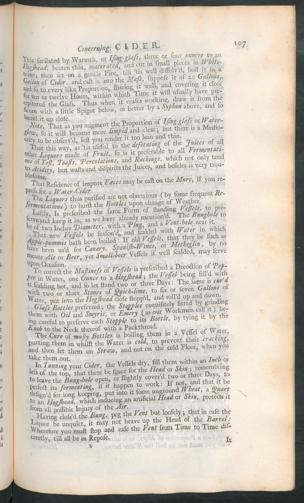 Concerning CIDER. 107
This facilated by Warmth, or Ising-glass, three or four ounces to an
Hogshead, beaten thin, macerated, and cut in small pieces in White-
wine; then set on a gentle Fire, till 'tis well dissolv'd, boil it in a
Gallon of Cider, and cast it into the Mass, suppose it of 20 Gallons,
and so to every like Proportion, stirring it well, and covering it close
for ten or twelve Hours, within which Time it will usually have pre-
cipitated the Gross. Thus when it ceases working, draw it from the
bottom with a little Spigot below, or better by a Syphon above, and so
barrel it up close.
Note, That as you augment the Proportion of Ising-glass or Water-
glew, so it will become more limped and clear; but there is a Medio-
crity to be observ'd, lest you render it too lean and thin.
That this way, as 'tis useful to the defecating of the Juices of all
other Liquors made of Fruit, so is it preferable to all Fermentati-
ons of Yest, Toasts, Percolations, and Rackings, which not only tend
to Acidity, but wasts and dispirits the Juices, and besides is very trou-
blesome.
That Residence of impure Fæces may be cast on the Murc, if you re-
press for a Water-Cider.
The Liquor thus purified are not obnoxious (by some frequent Re-
fermentations) to burst the Bottles upon change of Weather.
Lastly, Is prescribed the same Form of Standing Vessels, to pre-
serve and keep it in, as we have already mention'd. The Bunghole to
be of two Inches Diameter, with a Plug, and a Vent-hole near it.
That new Vessels be season'd, and scalded with Water in which
Apple-pummis hath been boiled: If old Vessels, that they be such as
have been us'd for Canary, Spanish-Wines, or Metheglin, by no
means Ale or Beer, yet Small-beer Vessels if well scalded, may serve
upon Occasion.
To correct the Mustiness of Vessels is prescribed a Decoction of Pep-
per in Water, one Ounce to a Hogshead; the Vessel being fill'd with
it scalding hot, and so let stand two or three Days: The same is cur'd
with two or three Stones of Quick-lime, to six or seven Gallons of
Water, put into the Hogshead close stopp'd, and roll'd up and down.
Glass Bottles preferred; the Stopples exquisitely fitted by grinding
them with Oil and Smyris, or Emery (as our Workmen call it) be-
ing careful to preserve each Stopple to its Bottle, by tying it by the
Knob to the Neck thereof with a Packthread.
The Cure of musty Bottles is boiling them in a Vessel of Water,
putting them in whilst the Water is cold, to prevent their cracking,
and then set them on Straw, and not on the cold Floor, when you
take them out.
In Tunning your Cider, the Vessels dry, fill them within an Inch or
less of the top, that there be space for the Head or Skin; remembring
to leave the Bung-hole open, or slightly cover'd two or three Days, to
perfect its fermenting, if it happen to work: If not, and that it be
design'd for long keeping, put into it some unground Wheat, a Quart
to an Hogshead, which inducing an artificial Head or Skin, protects it
from all possible Injury of the Air.
Having clos'd the Bung, yet the Vent but loosely; that in case the
Liquor be unquiet, it may not heave up the Head of the Barrel;
Wherefore you must stop and ease the Vent from Time to Time dis-
creetly, till all be in Repose.
It